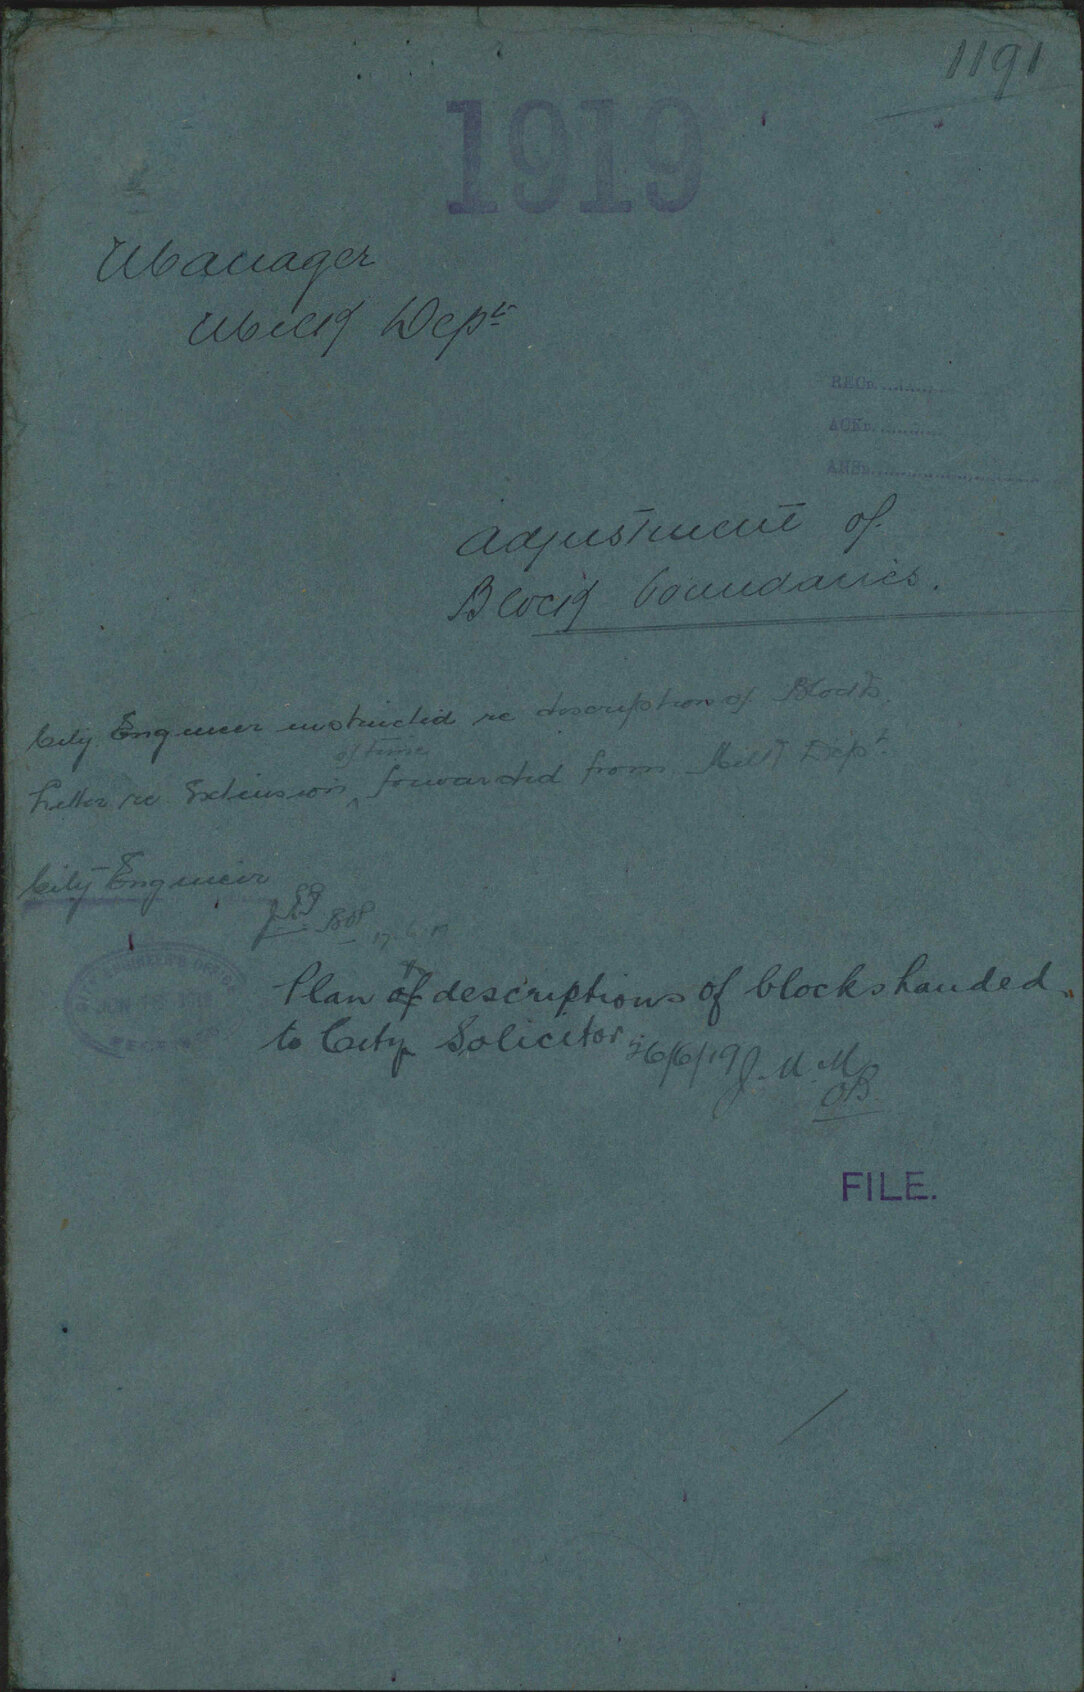 1191
1919
Manager
Milk Dept
RECD.
ACKD.
ANSD.
Adjustment of
Block boundaries.
City Engineer instructed re description of Blocks.
of time
Letter re Extension ^ forwarded from Milk Dept.
City Engineer
17.6.19
CITY ENGINEER'S OFFICE
JUN 18
RECEIVED
Plan & descriptions of blocks handed
to City Solicitor 26/6/19 J.M.M
OB
FILE.